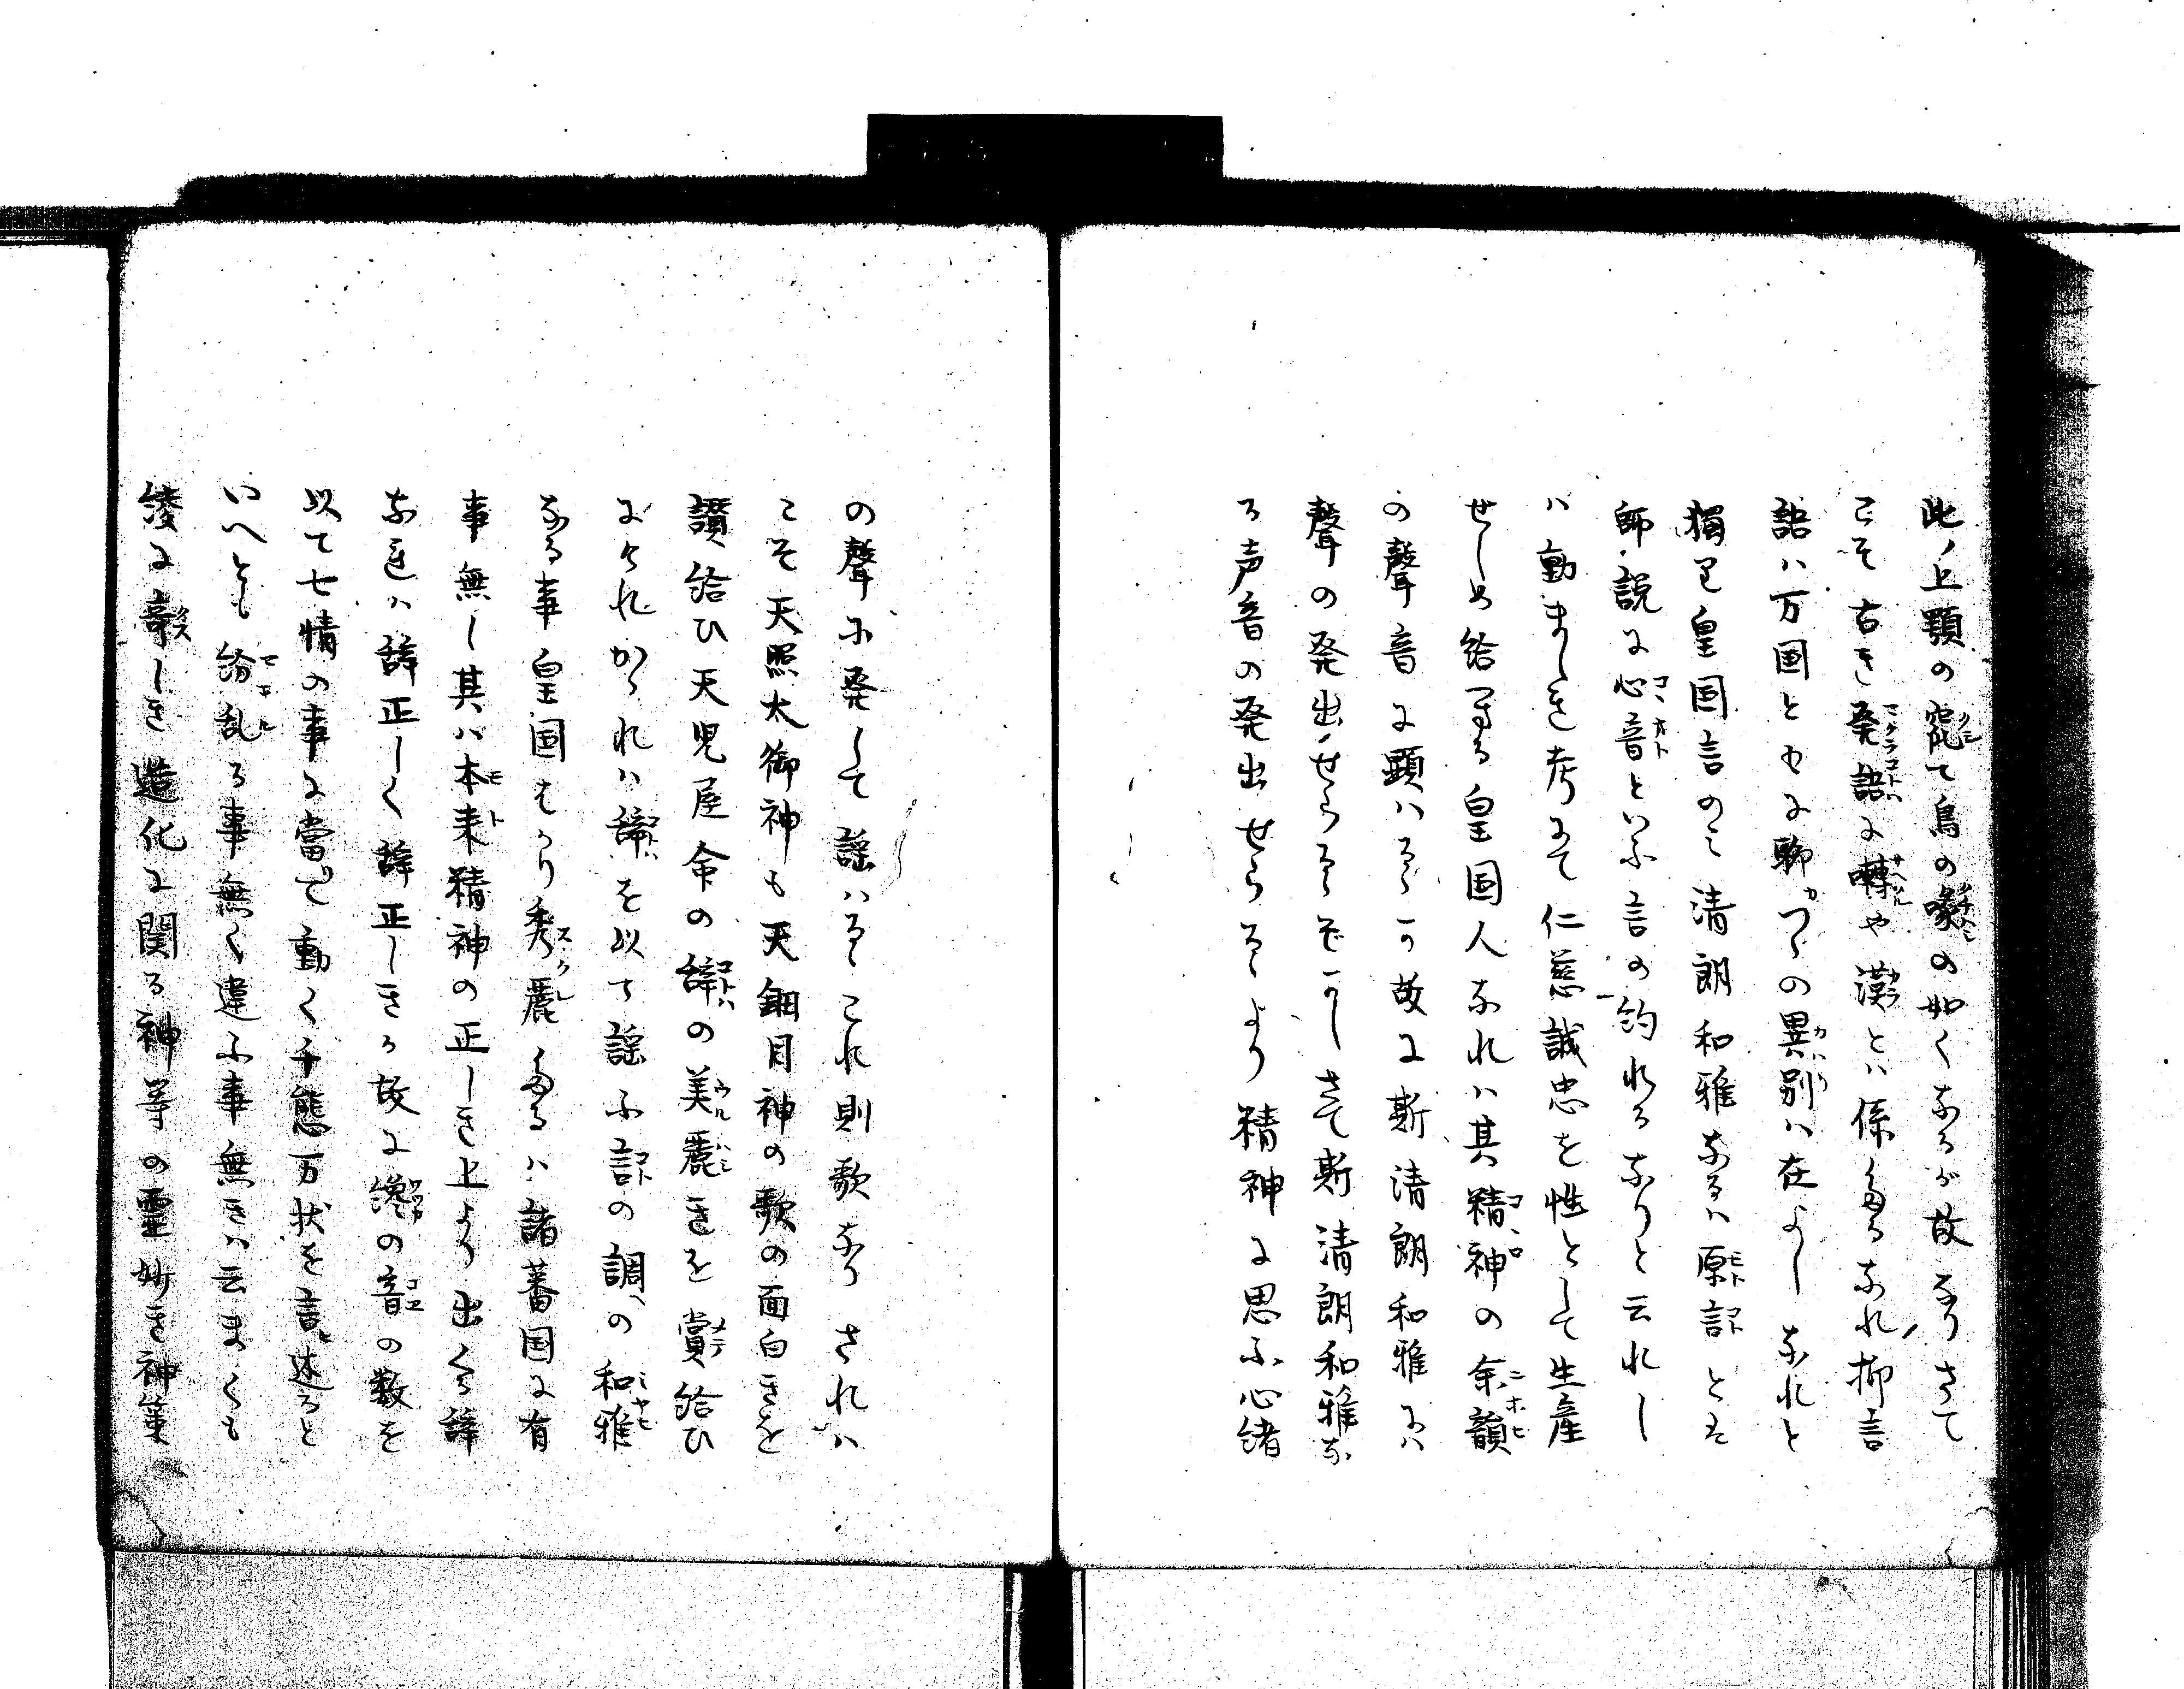 此ノ上顎の窕て鳥の喙の如くなるが故なりさて
こそ古き発語に囀や漢とハ係たるなれ抑言
語ハ万国ともに聊カつゝの異別ハ在よしなれと
獨り皇国言のミ清朗和雅なるハ原記とそ
師説に心音といふ言の約れるなりと云れし
ハ動ましき考にて仁慈誠忠を性として生産
せしめ給へる皇国人なれハ其精神の余韻
の聲音に顕ハるゝか故に斯清朗和雅にハ
聲の発出せらるゝぞかしさて斯清朗和雅な
る声音の発出せらるゝより精神に思ふ心緒
の聲に発して謡ハるゝこれ則歌なりされハ
こそ天照大御神も天鈿目神の歌の面白きを
讃給ひ天児屋命の辞の美麗きを賞給ひ
にけれかゝれハ辞を以て謡ふ言の調の和雅
なる事皇国はかり秀麗たるハ諸蕃国に有
事無し其ハ本来精神の正しき上より出くる辞
なれハ辞正しく辞正しきか故に纔の音の数を
以て七情の事に當て動く千態万状を言述ると
いへとも紛乱る事無く違ふ事無きハ云まくも
綾に奇しき造化に関る神等の霊妙き神業